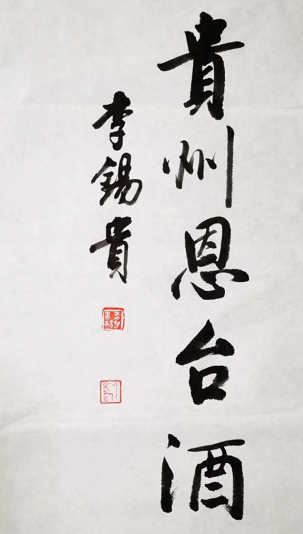 貴州恩台酒
李錫貴